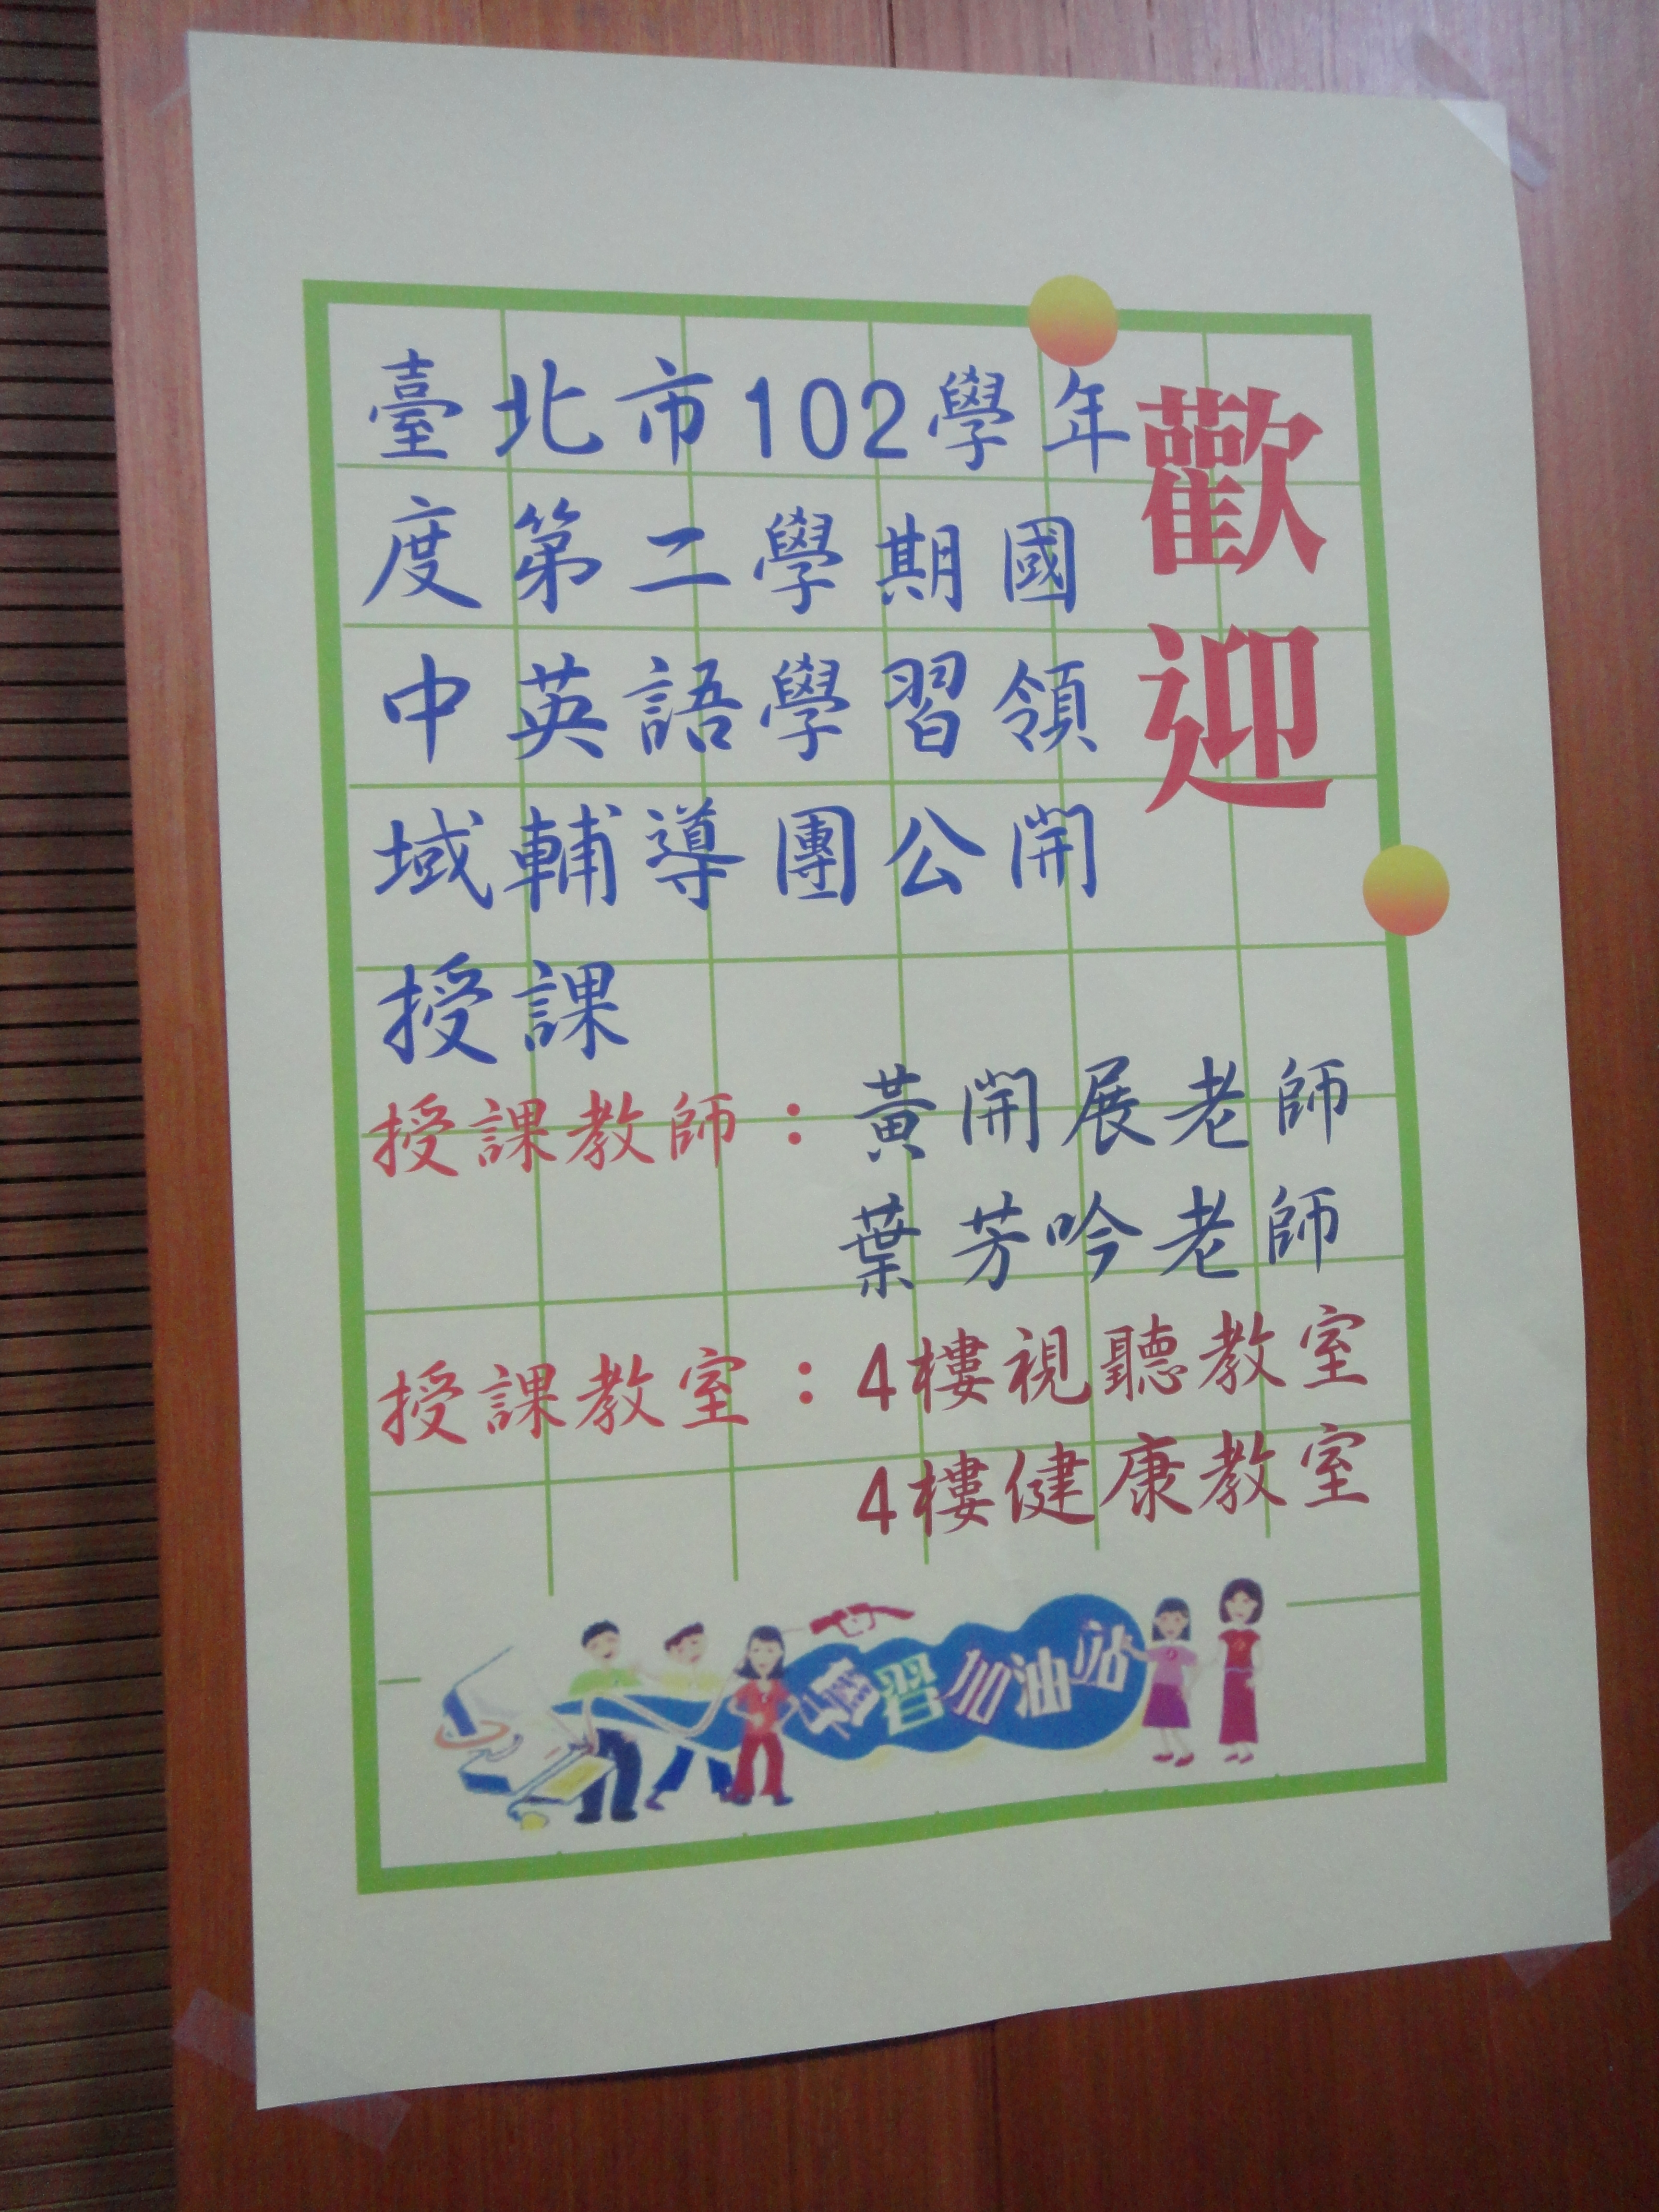 歡迎
臺北市102學年
度第二學期國
中英語學習領
域輔導團公開
授課
授課教師：黃開展老師
葉芳吟老師
授課教室：4樓視聽教室
4樓健康教室
學習加油站